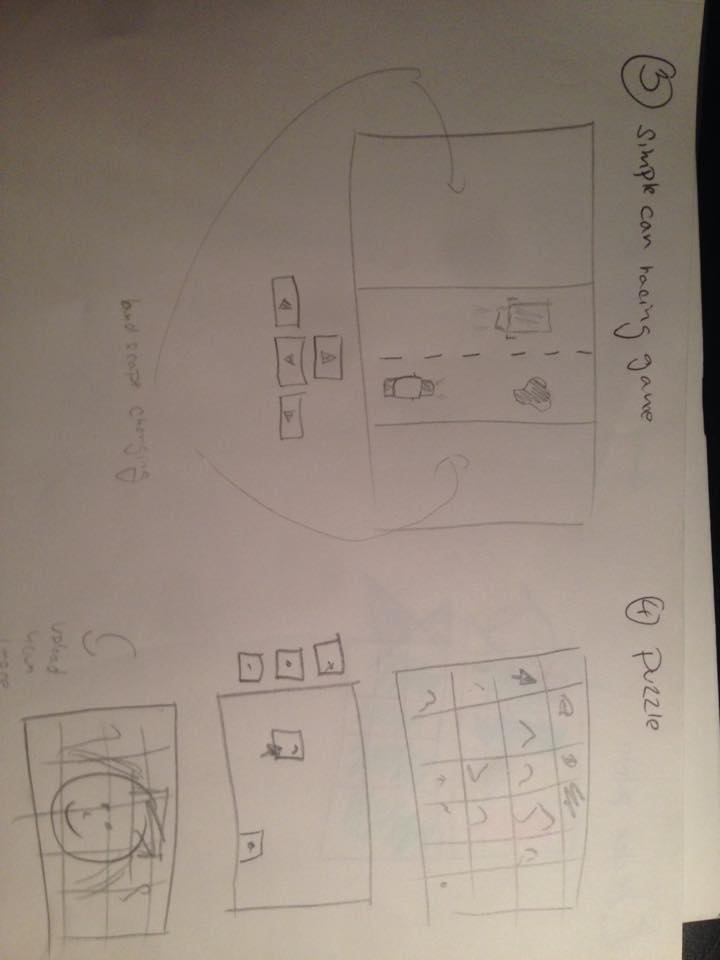 ③ Simple car racing game
landscape changing
④ Puzzle
upload
your